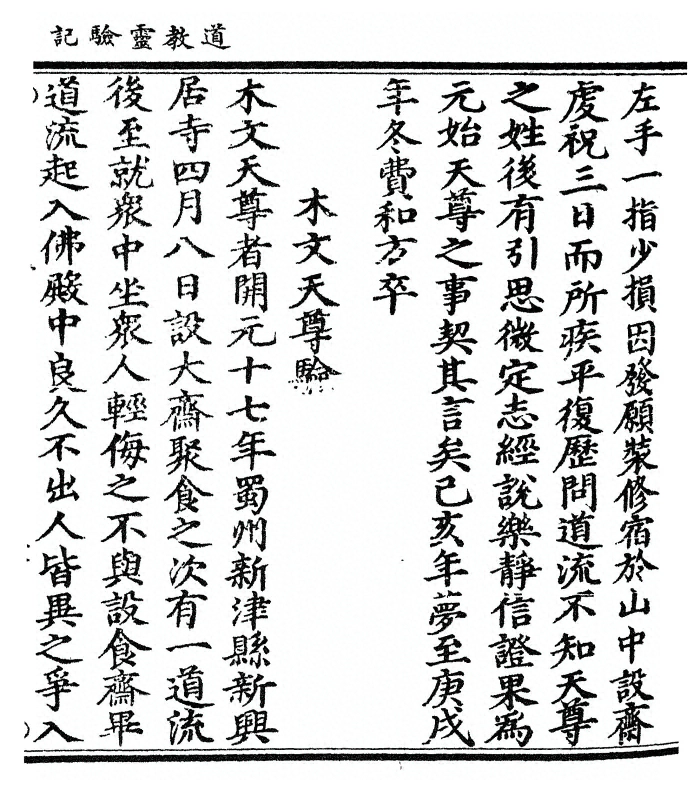 道教靈驗記
左手一指少損因發願裝修宿於山中設齋
虔祝三日而所疾平復歷問道流不知天尊
之姓後有引思微定志經說樂靜信證果為
元始天尊之事契其言矣己亥年夢至庚戌
年冬費和方卒
木文天尊驗
木文天尊者開元十七年蜀州新津縣新興
居寺四月八日設大齋聚食之次有一道流
後至就衆中坐衆人輕侮之不與設食齋畢
道流起入佛殿中良久不出人皆異之爭入